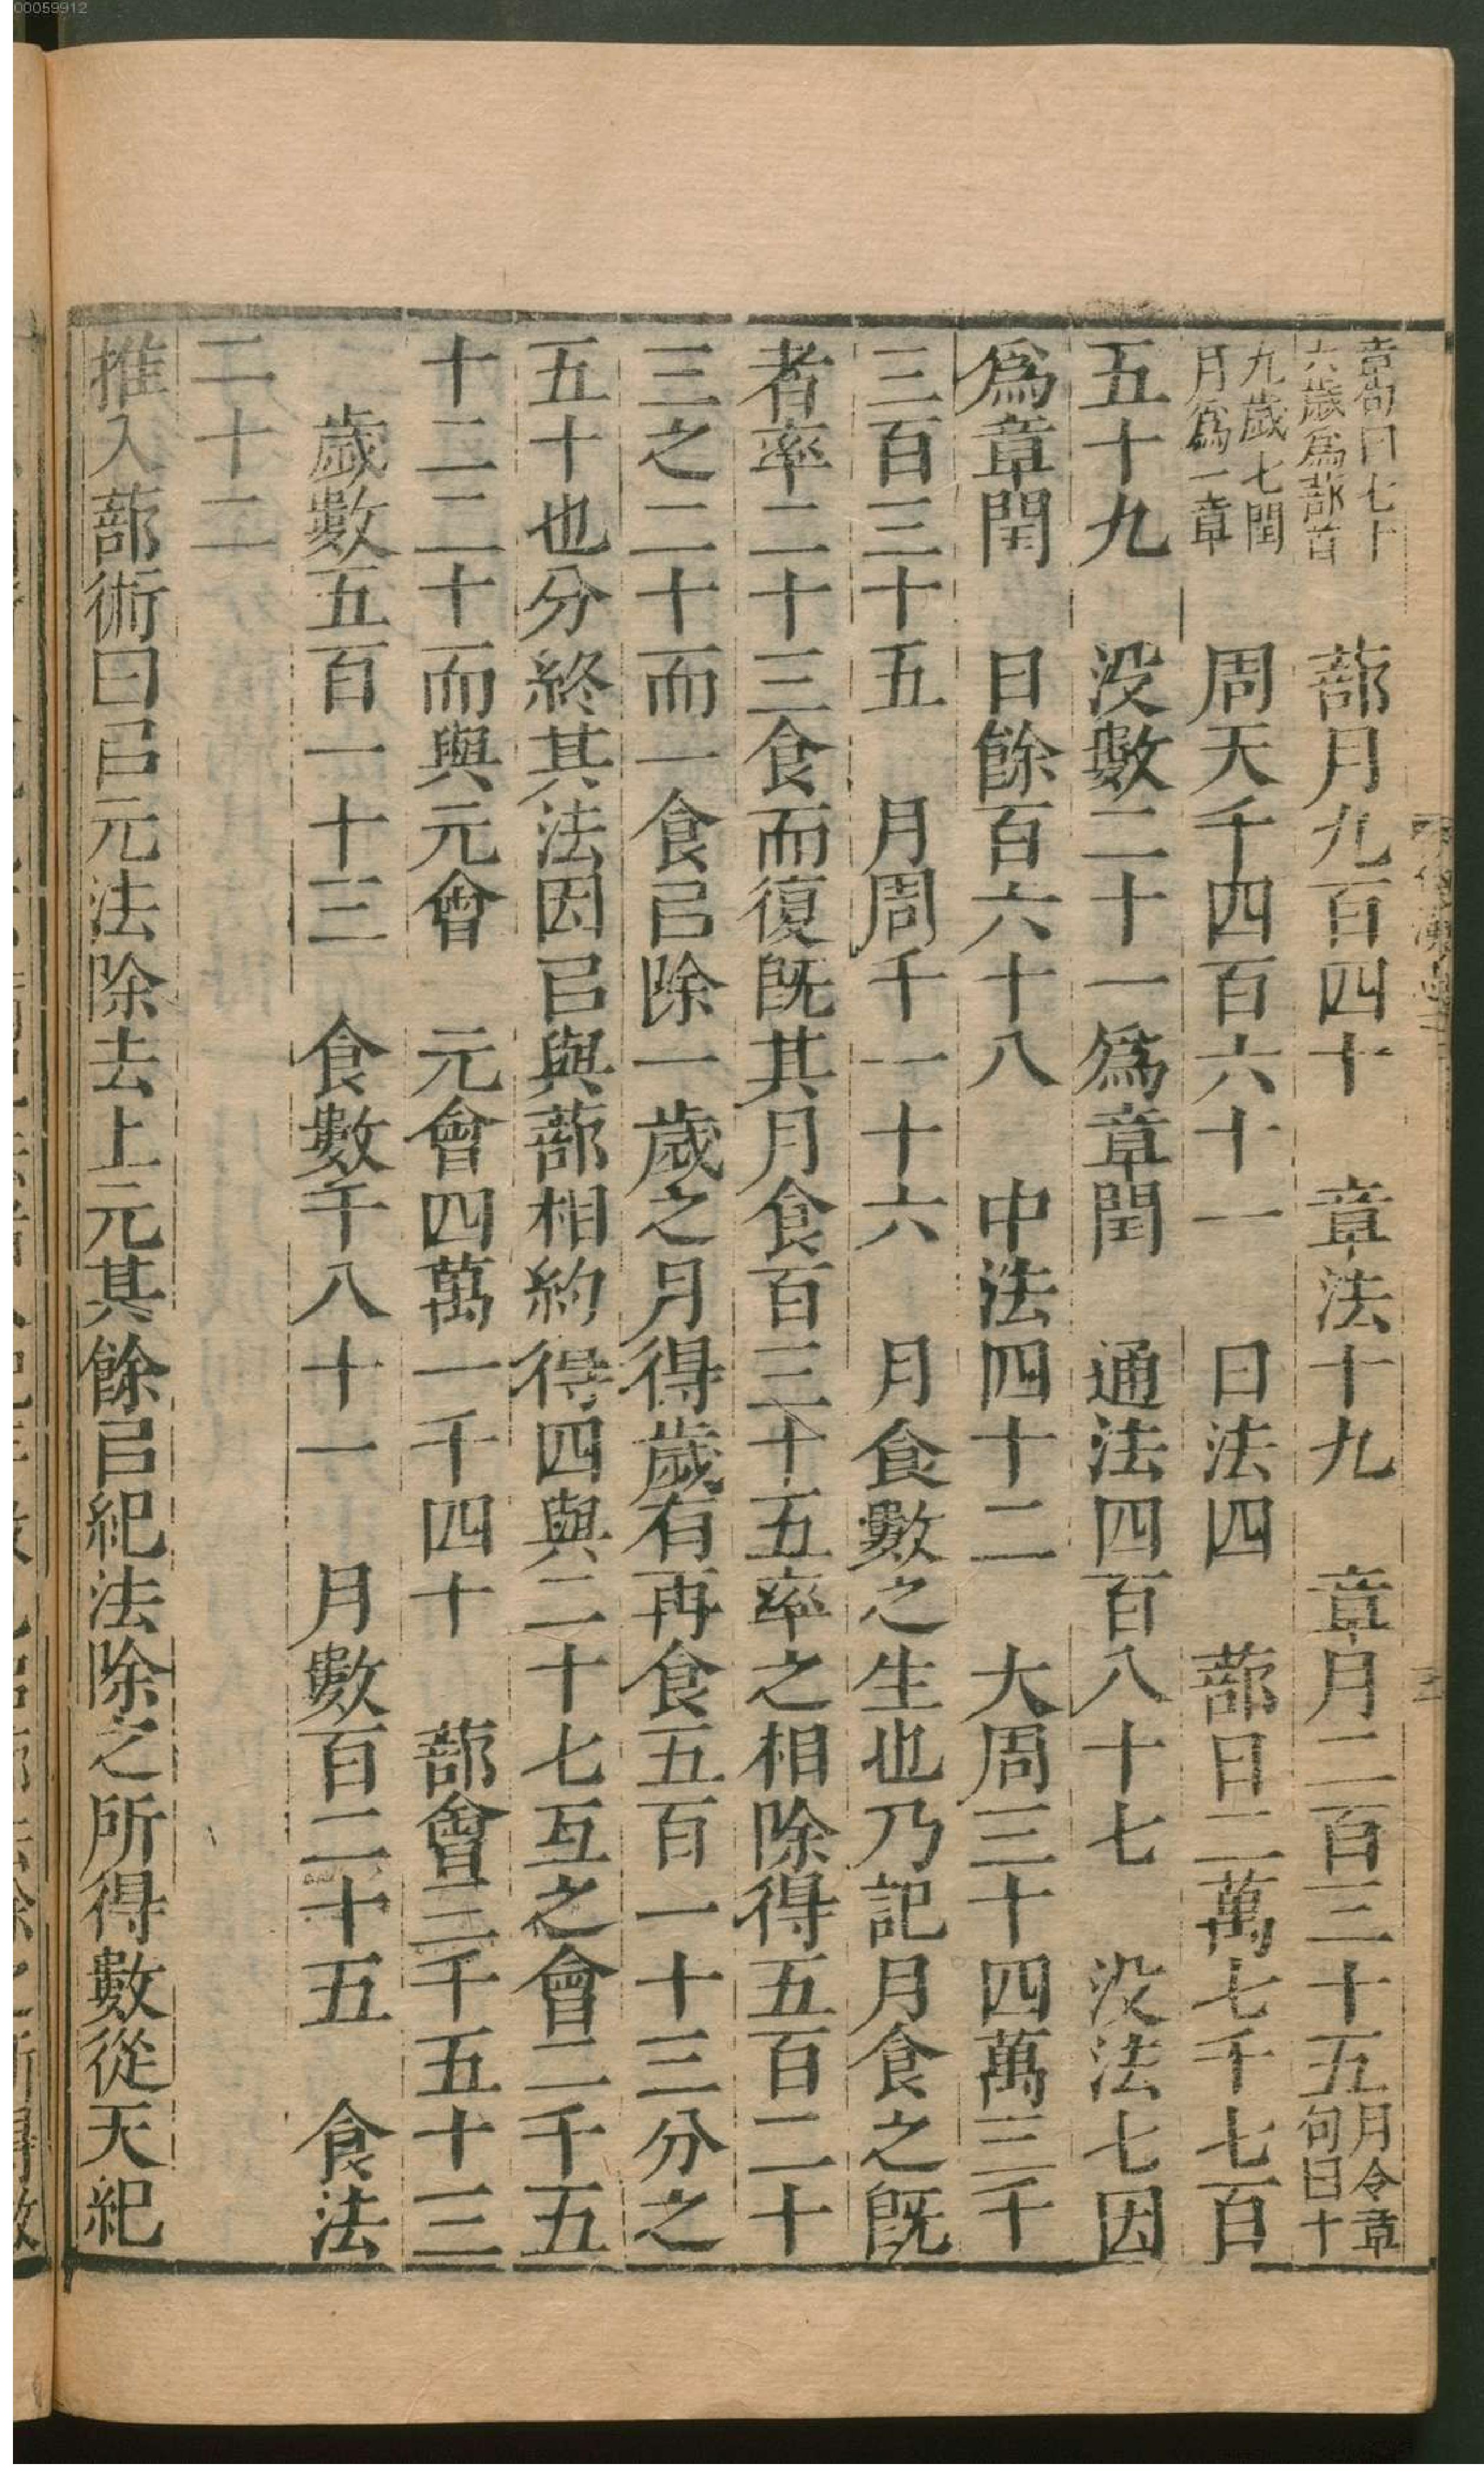 00059912
章句曰七十六歲爲蔀首 蔀月九百四十 章法十九 章月二百三十五月令章句曰十
九歲七閏月爲一章 周天千四百六十一 日法四 蔀日二萬七千七百
五十九 没數二十一爲章閏 通法四百八十七 没法七因
爲章閏 日餘百六十八 中法四十二 大周三十四萬三千
三百三十五 月周千一十六 月食數之生也乃記月食之既
者率二十三食而復既其月食百三十五率之相除得五百二十
三之二十而一食㠯除一歲之月得歲有再食五百一十三分之
五十也分終其法因㠯與蔀相約得四與二十七互之會二千五
十二二十而與元會 元會四萬一千四十 蔀會二千五十三
歲數五百一十三 食數千八十一 月數百二十五 食法
二十二
推入蔀術曰㠯元法除去上元其餘㠯紀法除之所得數從天紀